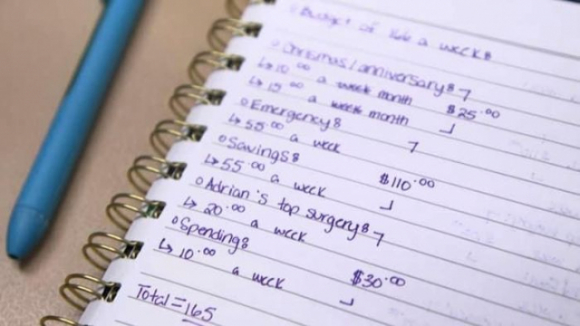 ◦Budget of 166 a week:
◦Christmas/anniversary:
↳10.00 a week month
↳15.00 a week month $25.00
◦Emergency:
↳55.00 a week
◦Savings: $110.00
↳55.00 a week
◦Adrian's top surgery:
↳20.00 a week
◦Spending: $30.00
↳10.00 a week
Total=165